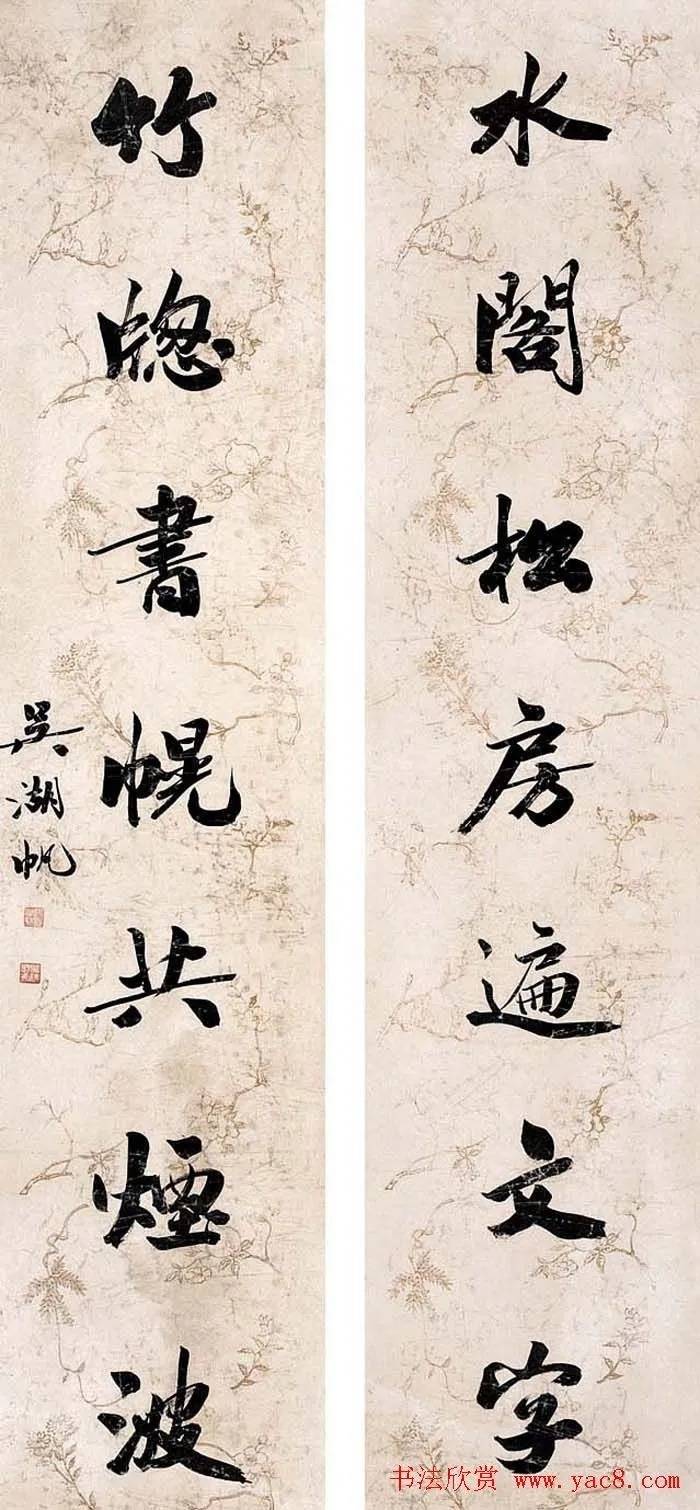 水閣松房遍文字
竹牕書幌共煙波
吳湖帆
书法欣赏 www.yac8.com